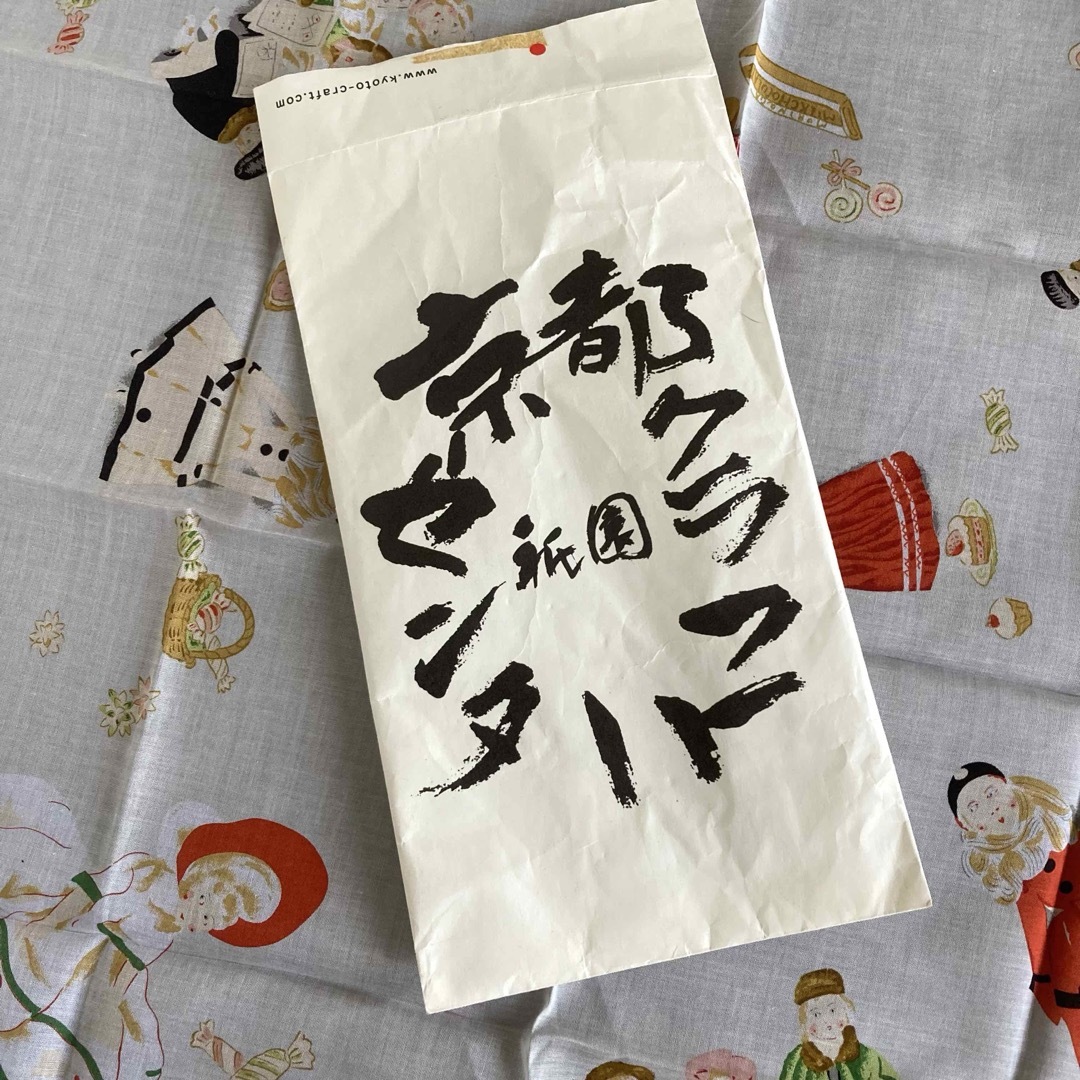 www.kyoto-craft.com
京都クラフトセンター
祇園